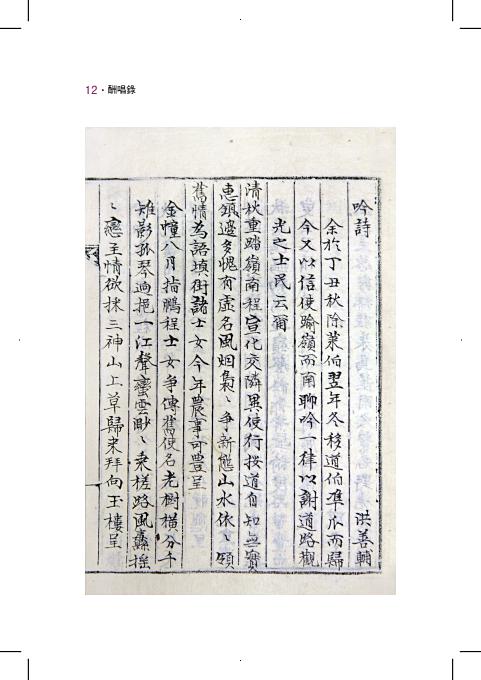 12 · 酬唱錄
吟詩 洪善輔
余於丁丑秋除萊伯翌年冬移道伯準瓜而歸
今又以信使踰嶺而南聊吟一律以謝道路觀
光之士民云爾
清秋重踏嶺南程宣化交隣異使行按道自知無實
惠鈬邊多愧有虛名風烟裊〻爭新態山水依〻領
舊情為語填街諸士女今年農事可豊呈
金幢八月指鵬程士女爭傳舊使名老樹橫分千
雉影孤琴逈挹一江聲蠻雲眇〻乘槎路風纛搖
〻戀主情欲採三神山上草歸来拜向玉樓呈